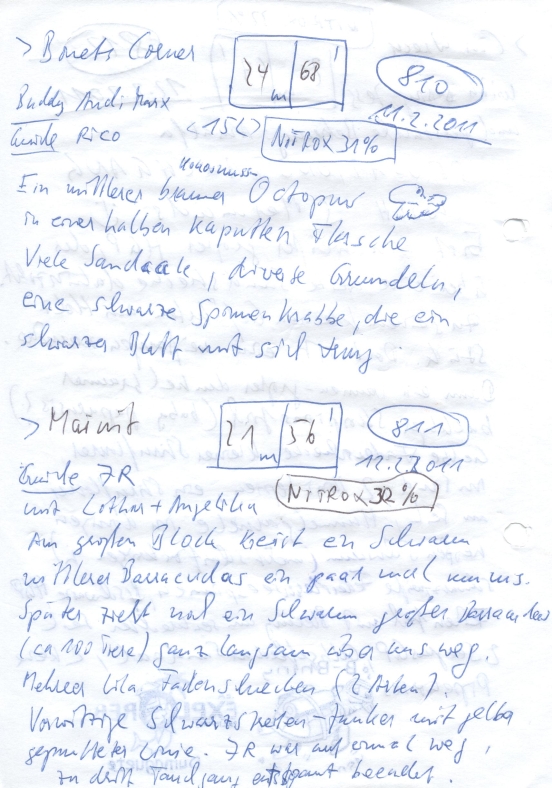 > Bonets Corner
24 m 68'
810
Buddy Andi Marx
11.2.2011
Guide Rico <15L> NITROX 31%
Ein mittlerer brauner Octopus
in einer halben kaputten Flasche
Viele Sandaale, diverse Grundeln,
eine schwarze Spinnenkrabbe, die ein
schwarzes Blatt mit sich trug
> Mainit
21 m 56'
811
Guide JR
12.2.2011
mit Lothar + Angelika NITROX 32%
Am großen Block kreist ein Schwarm
mittlerer Barracudas ein paar mal um uns.
Später zieht noch ein Schwarm großer Barracudas
(ca 100 Tiere) ganz langsam über uns weg.
Mehrere lila Fadenschnecken (2 Arten).
Vorwitzige Schwarzstreifen-Junker mit gelber
gepunkteter Linie. JR war auf einmal weg,
zu dritt Tauchgang entspannt beendet.